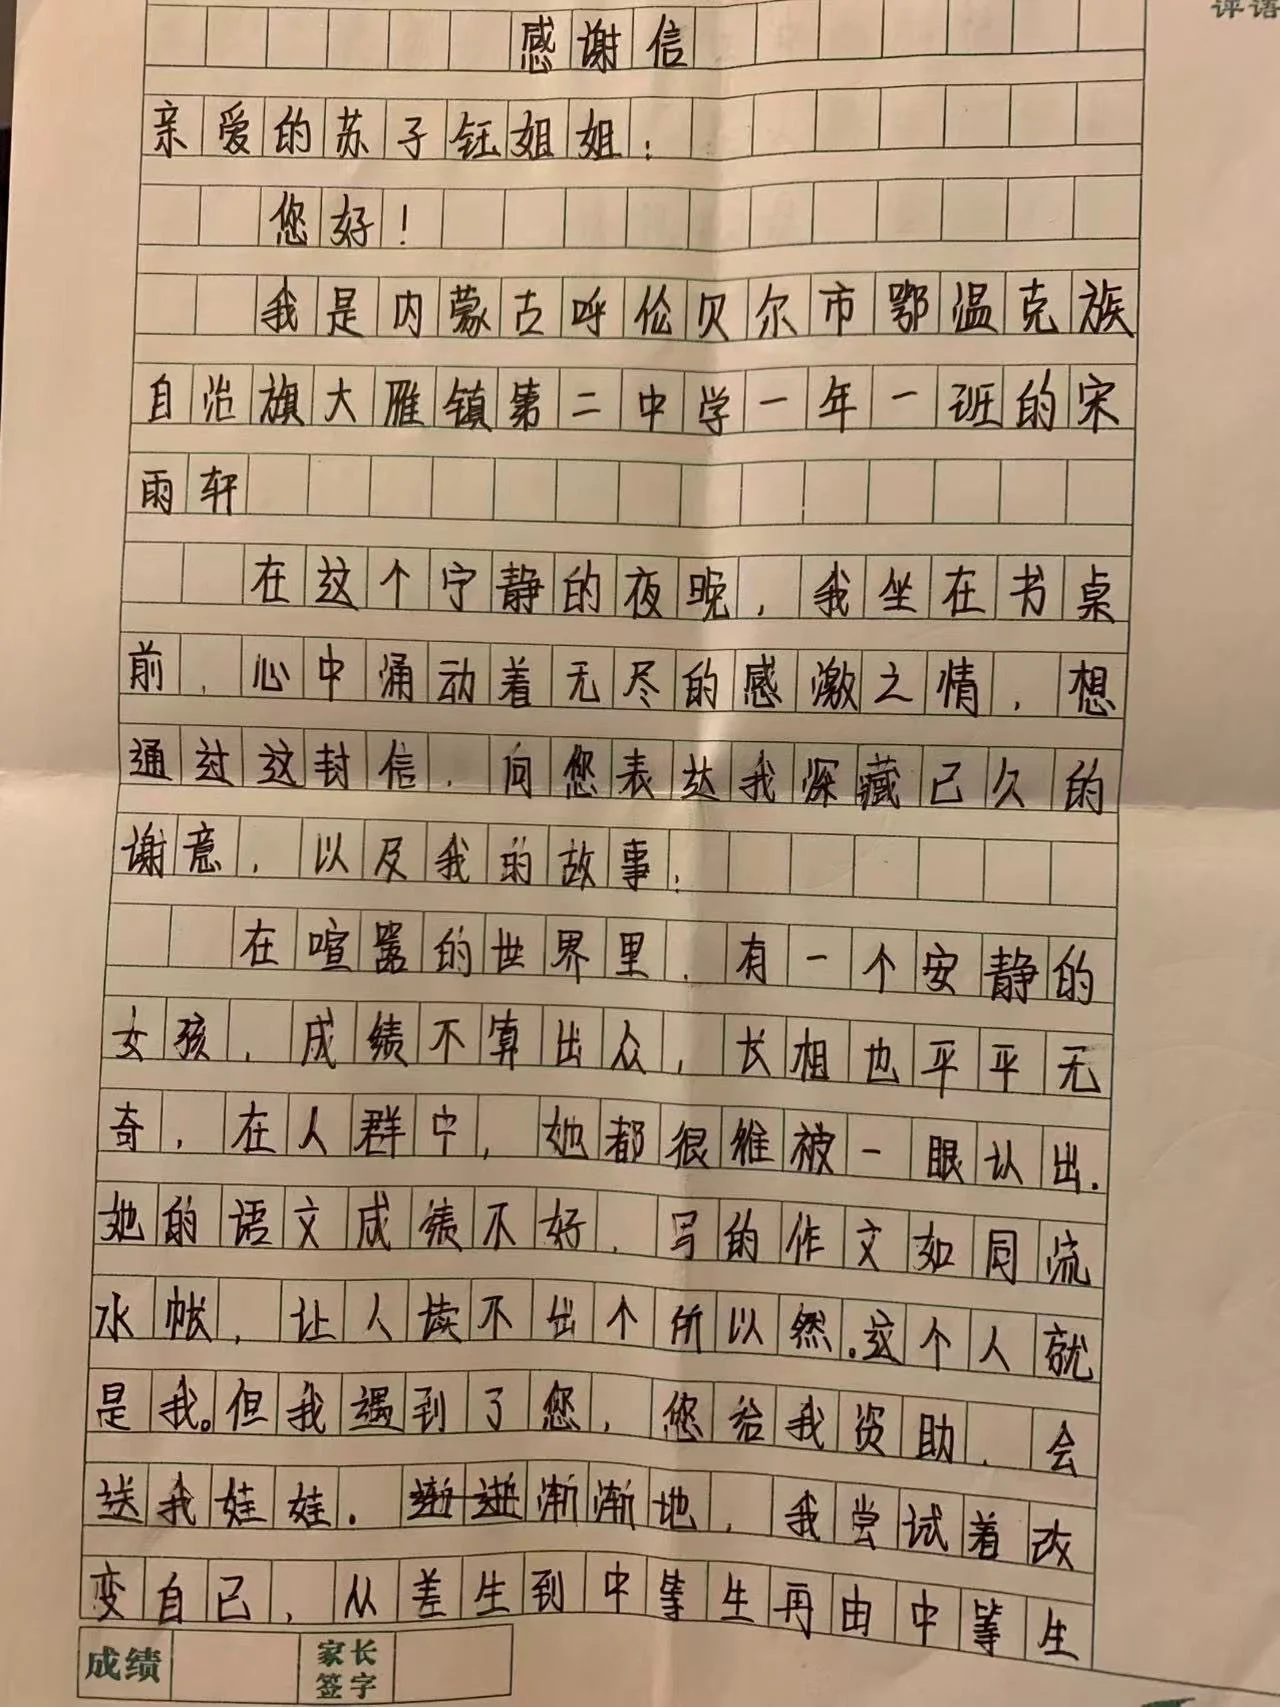 评语
感谢信
亲爱的苏子钰姐姐：
您好！
我是内蒙古呼伦贝尔市鄂温克族
自治旗大雁镇第二中学一年一班的宋
雨轩
在这个宁静的夜晚，我坐在书桌
前，心中涌动着无尽的感激之情，想
通过这封信，向您表达我深藏已久的
谢意，以及我的故事：
在喧嚣的世界里，有一个安静的
女孩，成绩不算出众，长相也平平无
奇，在人群中，她都很难被一眼认出.
她的语文成绩不好，写的作文如同流
水帐，让人读不出个所以然.这个人就
是我。但我遇到了您，您给我资助，会
送我娃娃.渐渐地，我尝试着改
变自己，从差生到中等生再由中等生
成绩 家长签字